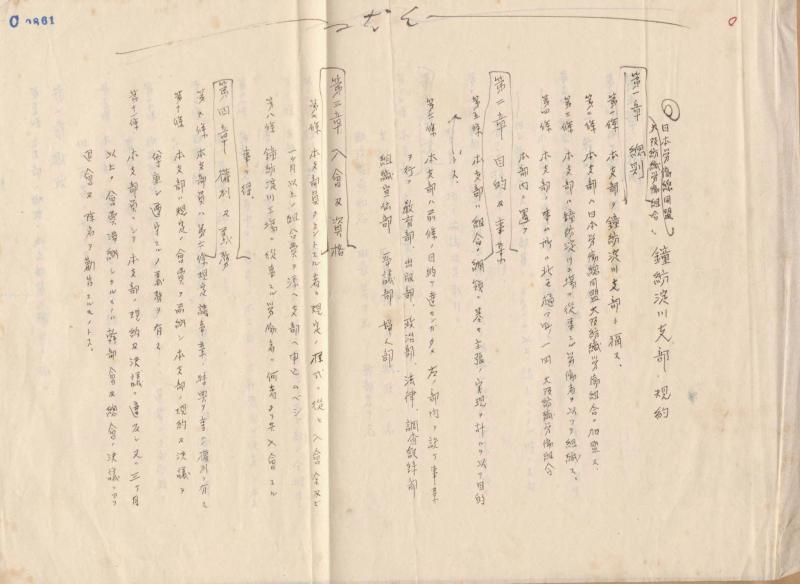 日本労働総同盟
大阪紡織労働組合
鐘紡淀川支部規約
第一章 総則
第一條 本支部ヲ鐘紡淀川支部ト稱ス
第二條 本支部ハ日本労働総同盟大阪紡織労働組合ニ加盟ス
第三條 本支部ハ鐘紡淀川工場ニ從事スル労働者ヲ以ツテ組織ス
第四條 本支部ノ事ム所ハ北區 大阪紡織労働組合
本部内ニ置ク
第二章 目的及事業
第五條 本支部ハ組合ノ綱領ニ基キ主張ノ実現ヲ計ルヲ以ツテ目的
トス
第六條 本支部ハ前條ノ目的ヲ達センガタメ左ノ部内ヲ設ケ事業
ヲ行フ 教育部 出版部 政治部 法律 調査
組織宣伝部 爭議部 婦人部
第三章 入會及資格
第七條 本支部員タラントスル者ハ規定ノ様式ニ從ヒ入會金及ビ
一ヶ月以上ノ組合費ヲ添ヘ支部ヘ申込ムベシ
第八條 鐘紡淀川工場ニ從事スル労働者ハ何者ヲモ入會スル
事ヲ得
第四章 權利及義務
第九條 本支部員ハ第六條規定諸事業ニ参與スル事ノ權利ヲ有ス
第十條 本支部ハ規定ノ會費ヲ品納シ本支部ノ規約及決議ヲ
遵守スルノ義務ヲ有ス
第十一條 本支部員ニシテ本支部ノ規約及決議ニ違反シ又ハ三ヶ月
以上ノ會費滞納シタルモノハ幹部會又ハ総會ノ決議ニヨリ
退會又ハ除名ヲ勧告スルモノトス